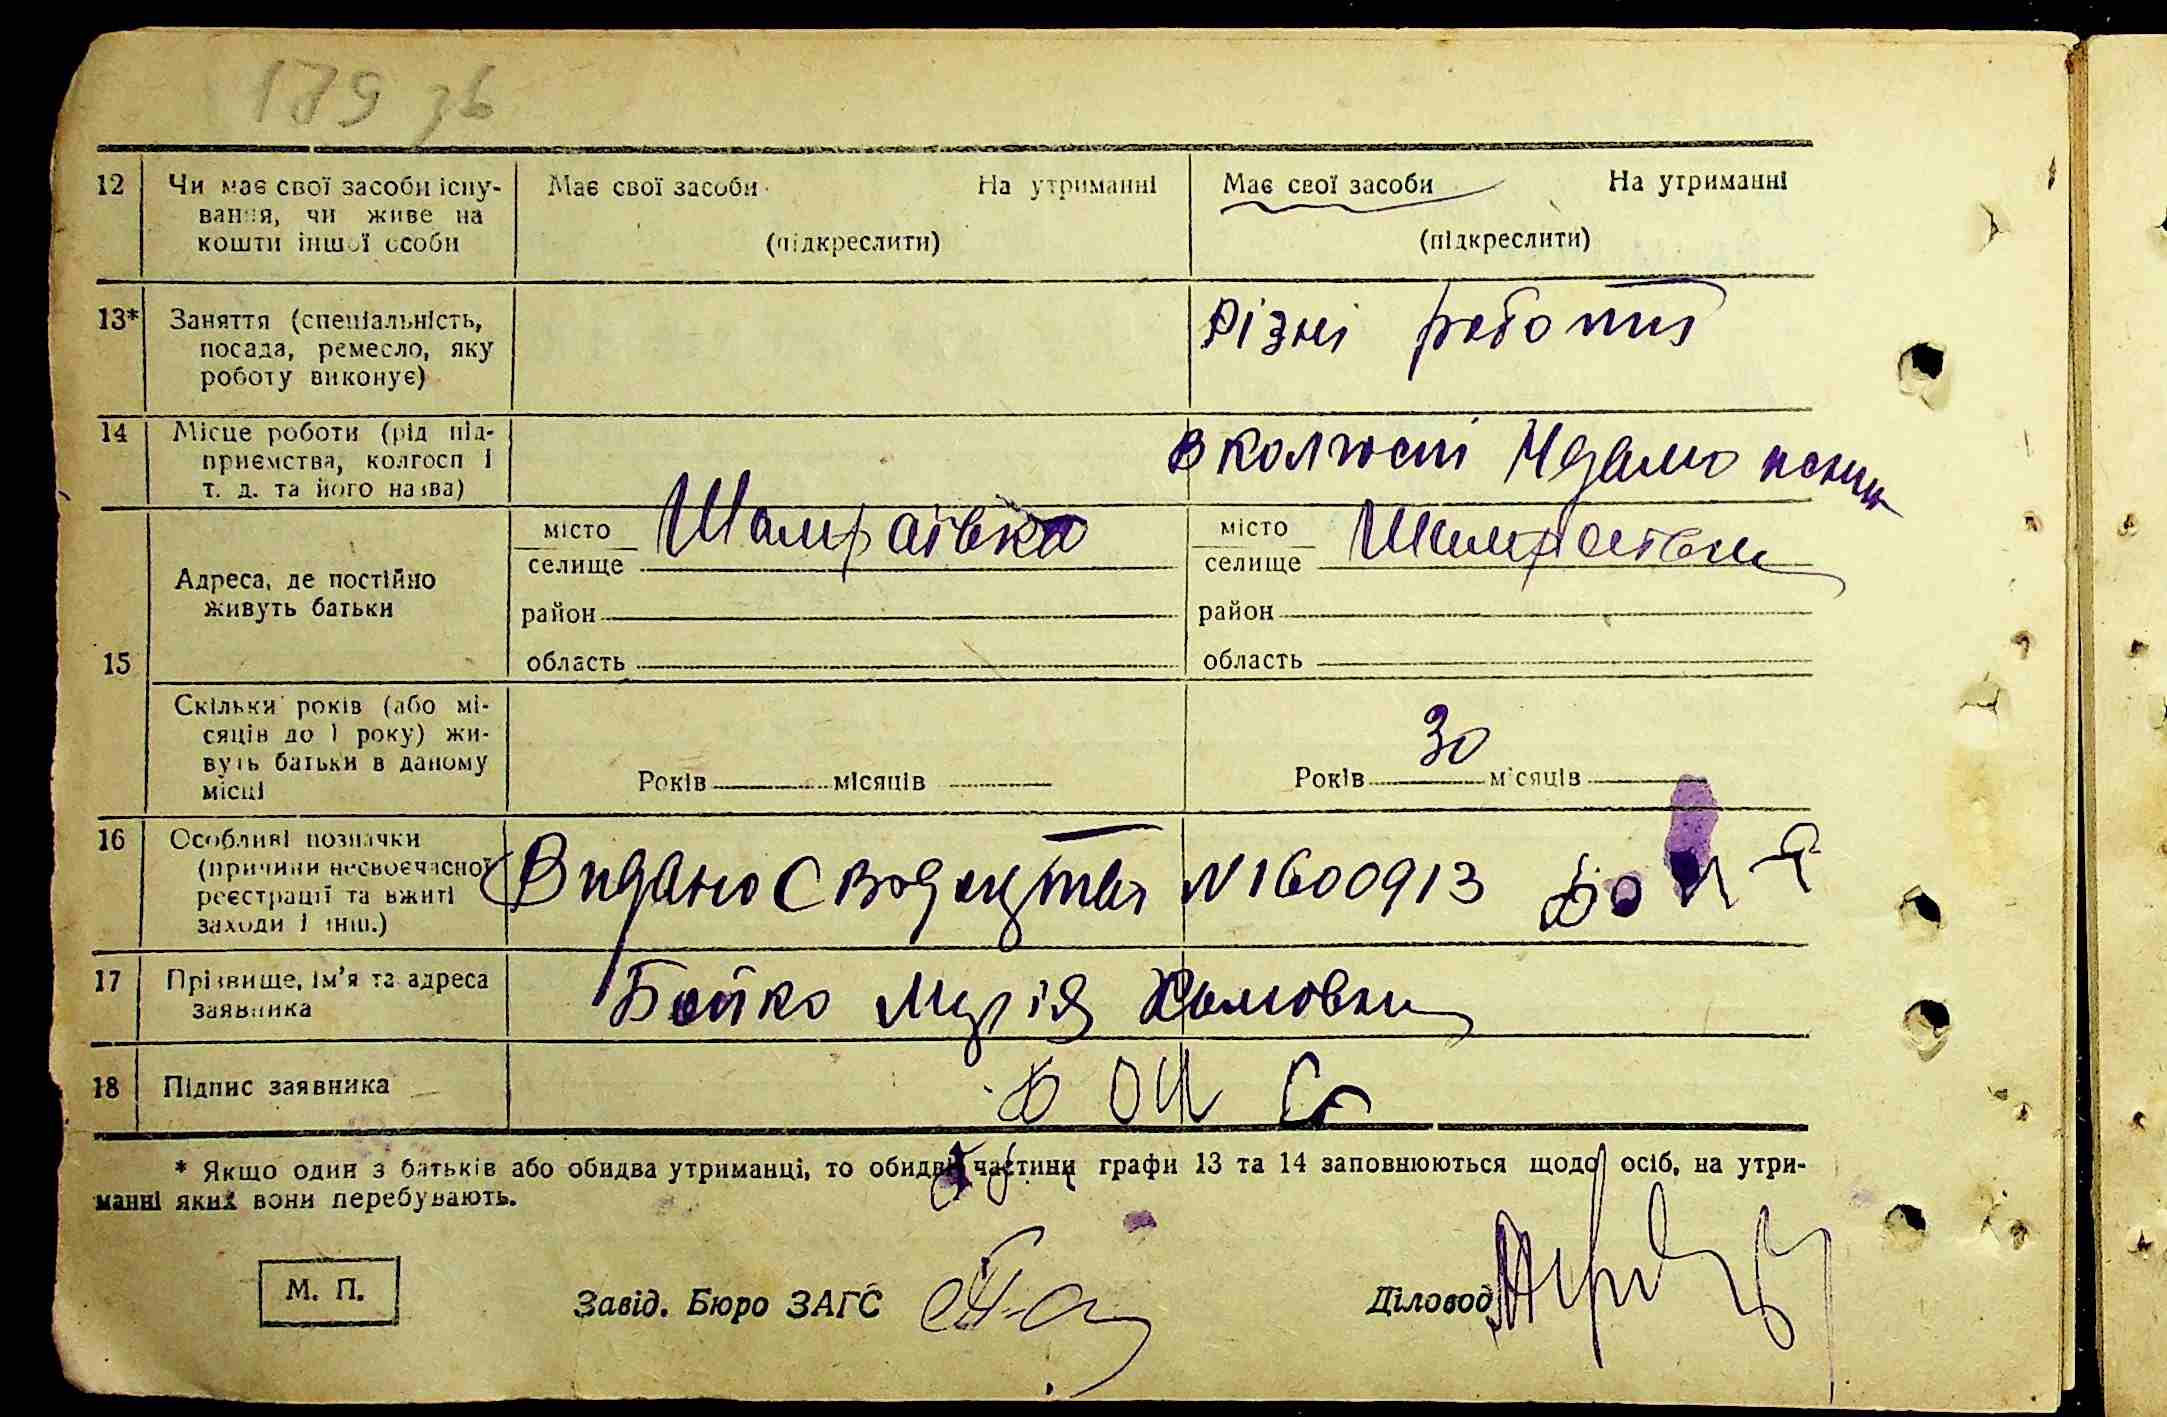 179 зв
12 Чи має свої засоби існу- Має свої засоби На утриманні Має свої засоби На утриманні
вання, чи живе на
кошти іншої особи (підкреслити) (підкреслити)
13* Заняття (спеціальність, Різні роботи
посада, ремесло, яку
роботу виконує)
14 Місце роботи (рід під- в колгоспі
приємства, колгосп і
т. д. та його назва)
місто Шамраївка місто Шамраївка
селище селище
Адреса, де постійно
живуть батьки
район район
15 область область
Скільки років (або мі-
сяців до 1 року) жи-
вуть батьки в даному
місці
Років місяців Років 30 місяців
16 Особливі позначки
(причини несвоєчасної Видано Сводоцтва N1600913
реєстрації та вжиті
заходи і інш.)
17 Прізвище, ім'я та адреса Бойко Марія Хомовна
заявника
18 Підпис заявника
* Якщо один з батьків або обидва утриманці, то обидві частини графи 13 та 14 заповнюються щодо осіб, на утри-
манні яких вони перебувають.
М. П. Завід. Бюро ЗАГС Діловод